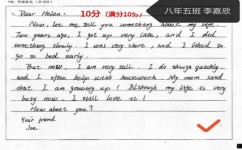 八年五班 李嘉欣
Dear Helen:
10分 (满分10分)
Now, let me tell you something about my life.
Two years ago, I got up very late, and I did
something slowly. I was very short, and I liked to
go to bed early.
But now, I am very tall. I do things quickly,
and I often help with housework. My mom said
that I am growing up! Although my life is very
busy now, I still love it!
How about you?
Your friend
Joe